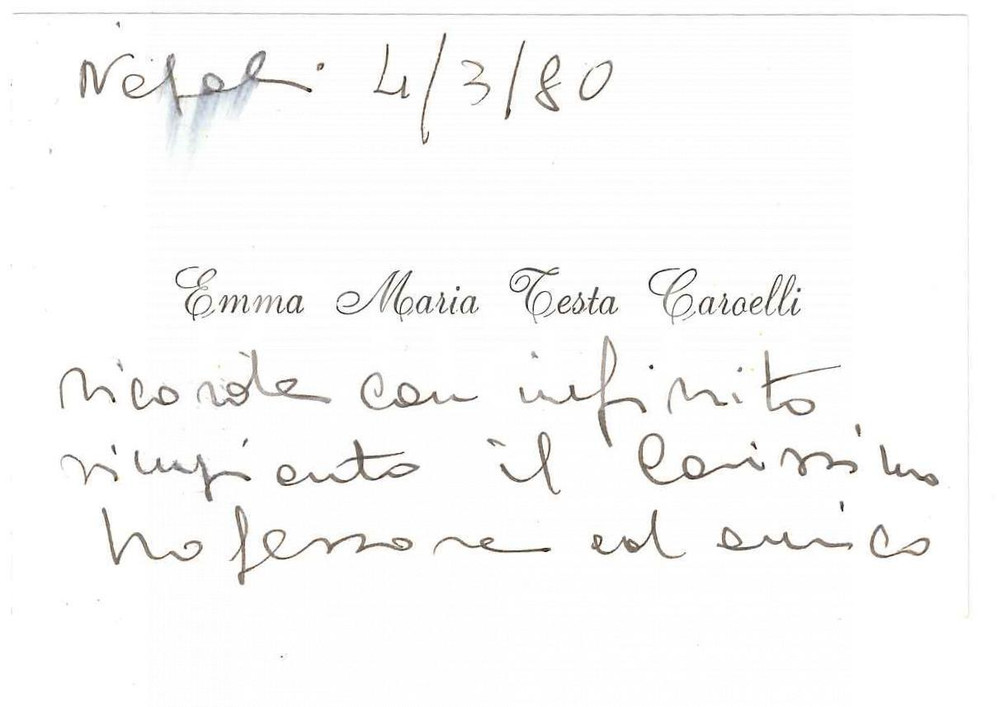 Napoli 4/3/80
Emma Maria Testa Caroelli
ricorda con infinito
rimpianto il Carissimo
Professore ed amico